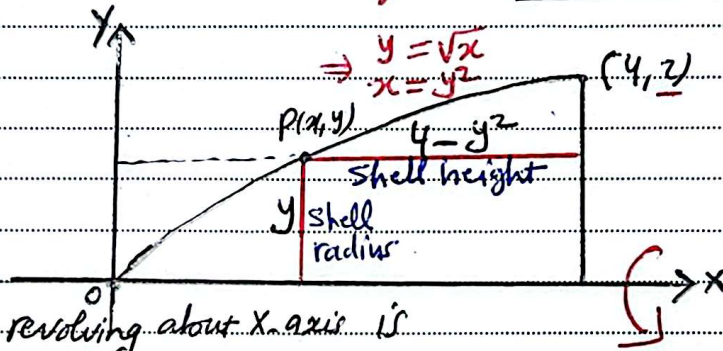 Y
⇒ y = √x
x = y²
(4, 2)
P(x, y)
4 - y²
shell height
y shell
radius
O
X
revolving about X-axis is